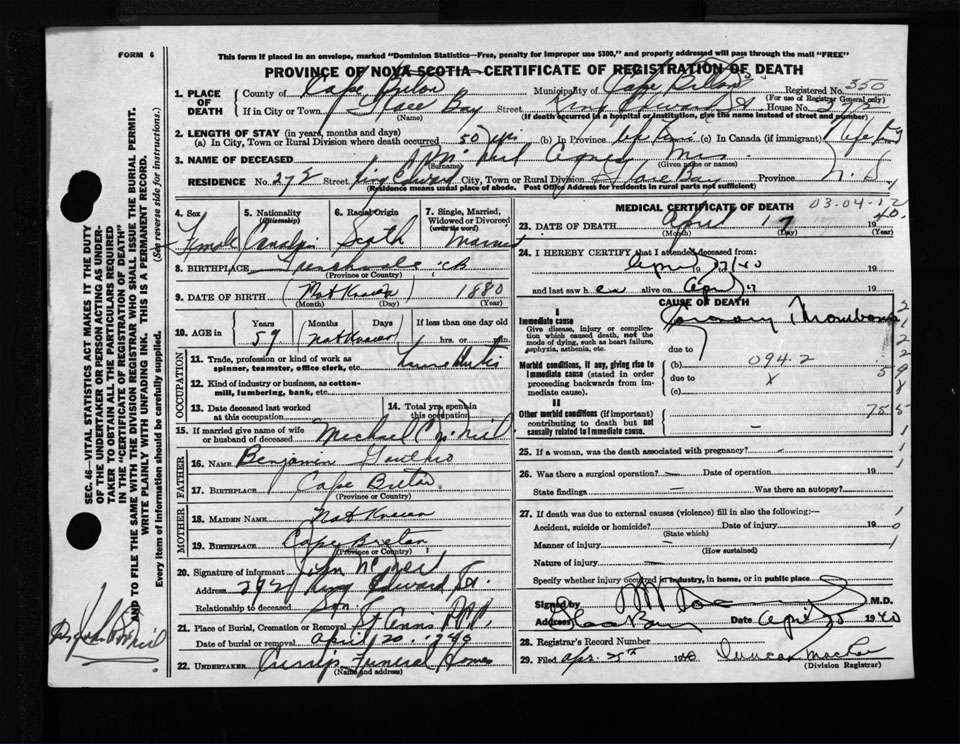 FORM 6
This form if placed in an envelope, marked "Dominion Statistics—Free, penalty for improper use $300," and properly addressed will pass through the mail "FREE"
PROVINCE OF NOVA SCOTIA—CERTIFICATE OF REGISTRATION OF DEATH
1. PLACE OF DEATH
County of Cape Breton Municipality of Cape Breton Registered No. 350
(For use of Registrar General only)
If in City or Town Glace Bay Street King Edward St House No. 272
(Name) (If death occurred in a hospital or institution, give the name instead of street and number)
2. LENGTH OF STAY (in years, months and days)
(a) In City, Town or Rural Division where death occurred 50 yrs (b) In Province Life Time (c) In Canada (if immigrant) Life Time
3. NAME OF DECEASED McNeil Agnes Mrs.
(Surname) (Given name or names)
RESIDENCE No. 272 Street King Edward City, Town or Rural Division Glace Bay Province N. S.
(Residence means usual place of abode. Post Office Address for residents in rural parts not sufficient)
4. Sex
Female
5. Nationality
(Citizenship)
Canadian
6. Racial Origin
Scotch
7. Single, Married, Widowed or Divorced
(write the word)
Married
8. BIRTHPLACE Frenchvale C.B.
(Province or Country)
9. DATE OF BIRTH (Not Known 1880
(Month) (Day) (Year)
10. AGE in
Years
59
Months Days
(Not Known)
If less than one day old
hrs. or min.
OCCUPATION
11. Trade, profession or kind of work as spinner, teamster, office clerk, etc.
12. Kind of industry or business, as cotton-mill, lumbering, bank, etc.
13. Date deceased last worked at this occupation
14. Total yrs. spent in this occupation
15. If married give name of wife or husband of deceased Michael McNeil
FATHER
16. NAME Benjamin
17. BIRTHPLACE Cape Breton
(Province or Country)
MOTHER
18. MAIDEN NAME Not Known
19. BIRTHPLACE Cape Breton
(Province or Country)
20. Signature of informant John McNeil
Address 272 King Edward St.
Relationship to deceased Son
21. Place of Burial, Cremation or Removal St Anns
Date of burial or removal April 20 1940
22. UNDERTAKER Funeral Home
(Name and address)
MEDICAL CERTIFICATE OF DEATH
03.04.12
23. DATE OF DEATH April 17 40
(Month) (Day) (Year)
24. I HEREBY CERTIFY that I attended deceased from:
April 17/40 19
19
and last saw her alive on April 17 19
CAUSE OF DEATH
I
Immediate cause
Give disease, injury or complication which caused death, not the mode of dying, such as heart failure, asphyxia, asthenia, etc.
(a) Coronary Thrombosis
due to
Morbid conditions, if any, giving rise to immediate cause (stated in order proceeding backwards from immediate cause).
(b) 094.2
due to
(c)
II
Other morbid conditions (if important) contributing to death but not causally related to immediate cause.
25. If a woman, was the death associated with pregnancy? -
26. Was there a surgical operation? - Date of operation 19
State findings - Was there an autopsy? -
27. If death was due to external causes (violence) fill in also the following:—
Accident, suicide or homicide? Date of injury 19
(State which)
Manner of injury
(How sustained)
Nature of injury
Specify whether injury occurred in industry, in home, or in public place
Signed by M.D.
Address Glace Bay Date April 20 1940
28. Registrar's Record Number
29. Filed Apr. 25th 1940 Duncan
(Division Registrar)
SEC. 46—VITAL STATISTICS ACT MAKES IT THE DUTY
OF THE UNDERTAKER OR PERSON ACTING AS UNDER-
TAKER TO OBTAIN ALL THE PARTICULARS REQUIRED
IN THE "CERTIFICATE OF REGISTRATION OF DEATH"
AND TO FILE THE SAME WITH THE DIVISION REGISTRAR WHO SHALL ISSUE THE BURIAL PERMIT.
WRITE PLAINLY WITH UNFADING INK. THIS IS A PERMANENT RECORD.
Every item of information should be carefully supplied. (See reverse side for instructions.)